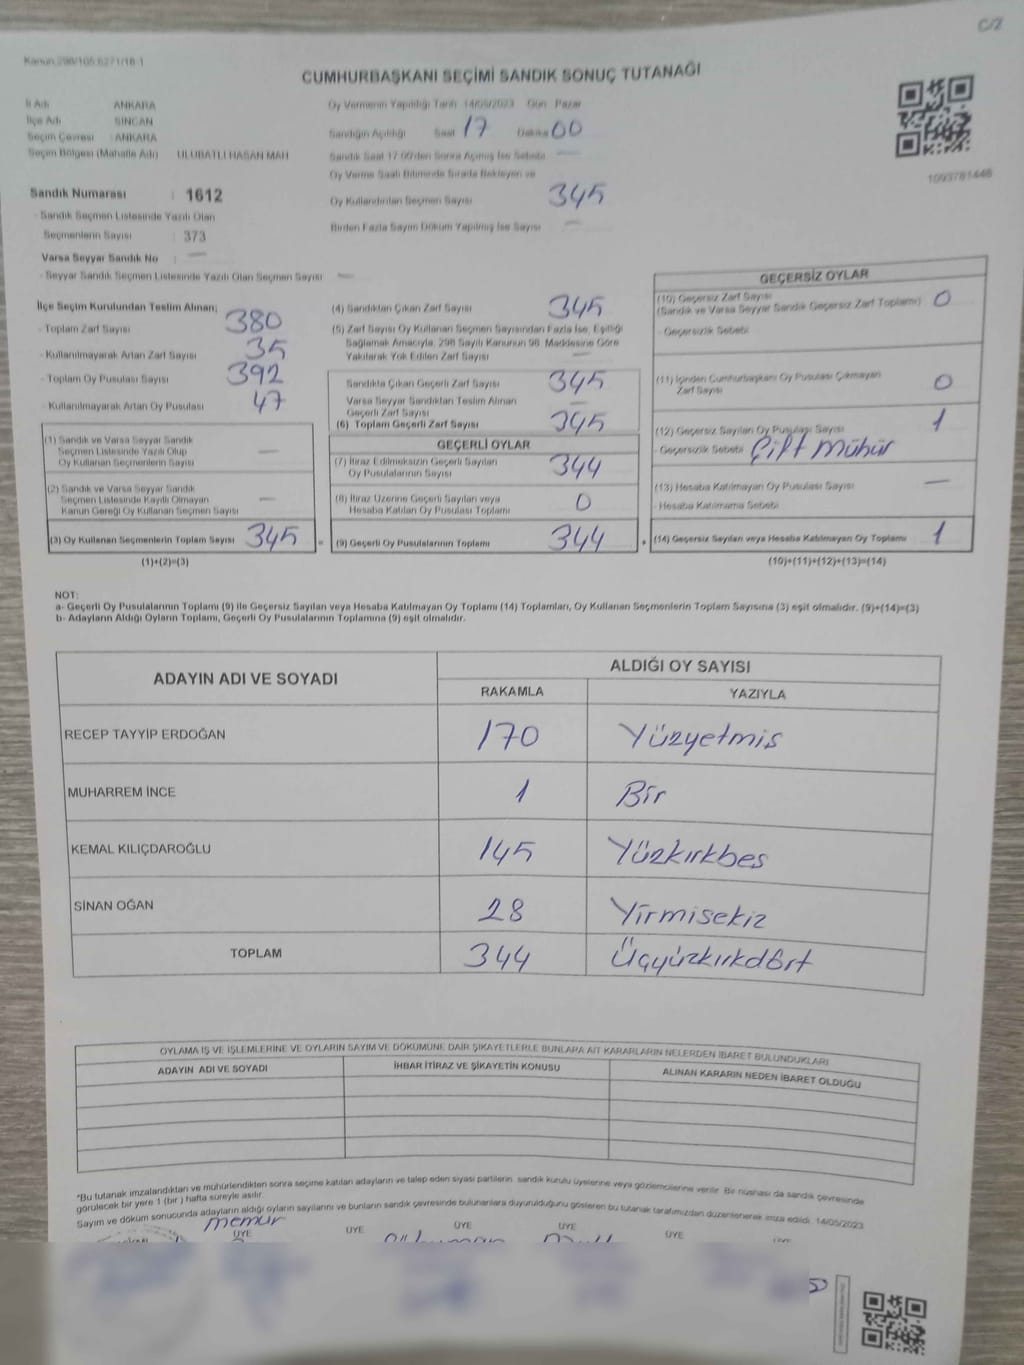 C/2
Kanun:298/105,6271/18.1
CUMHURBAŞKANI SEÇİMİ SANDIK SONUÇ TUTANAĞI
İl Adı ANKARA
İlçe Adı SİNCAN
Seçim Çevresi : ANKARA
Seçim Bölgesi (Mahalle Adı) ULUBATLI HASAN MAH
Oy Vermenin Yapıldığı Tarih 14/05/2023 Gün Pazar
Sandığın Açıldığı Saat 17 Dakika 00
Sandık Saat 17:00'den Sonra Açılmış İse Sebebi —
Oy Verme Saati Bitiminde Sırada Bekleyen ve
Oy Kullandırılan Seçmen Sayısı 345
Birden Fazla Sayım Döküm Yapılmış İse Sayısı —
1093781448
Sandık Numarası : 1612
- Sandık Seçmen Listesinde Yazılı Olan
Seçmenlerin Sayısı : 373
Varsa Seyyar Sandık No : —
- Seyyar Sandık Seçmen Listesinde Yazılı Olan Seçmen Sayısı : —
İlçe Seçim Kurulundan Teslim Alınan;
- Toplam Zarf Sayısı 380
- Kullanılmayarak Artan Zarf Sayısı 35
- Toplam Oy Pusulası Sayısı 392
- Kullanılmayarak Artan Oy Pusulası 47
(1) Sandık ve Varsa Seyyar Sandık
Seçmen Listesinde Yazılı Olup
Oy Kullanan Seçmenlerin Sayısı —
(2) Sandık ve Varsa Seyyar Sandık
Seçmen Listesinde Kayıtlı Olmayan
Kanun Gereği Oy Kullanan Seçmen Sayısı —
(3) Oy Kullanan Seçmenlerin Toplam Sayısı 345 =
(1)+(2)=(3)
(4) Sandıktan Çıkan Zarf Sayısı 345
(5) Zarf Sayısı Oy Kullanan Seçmen Sayısından Fazla İse, Eşitliği
Sağlamak Amacıyla, 298 Sayılı Kanunun 98. Maddesine Göre
Yakılarak Yok Edilen Zarf Sayısı —
Sandıkta Çıkan Geçerli Zarf Sayısı 345
Varsa Seyyar Sandıktan Teslim Alınan
Geçerli Zarf Sayısı —
(6) Toplam Geçerli Zarf Sayısı 345
GEÇERLİ OYLAR
(7) İtiraz Edilmeksizin Geçerli Sayılan
Oy Pusulalarının Sayısı 344
(8) İtiraz Üzerine Geçerli Sayılan veya
Hesaba Katılan Oy Pusulası Toplamı 0
(9) Geçerli Oy Pusulalarının Toplamı 344 +
GEÇERSİZ OYLAR
(10) Geçersiz Zarf Sayısı
(Sandık ve Varsa Seyyar Sandık Geçersiz Zarf Toplamı) 0
- Geçersizlik Sebebi
(11) İçinden Cumhurbaşkanı Oy Pusulası Çıkmayan
Zarf Sayısı 0
(12) Geçersiz Sayılan Oy Pusulası Sayısı 1
- Geçersizlik Sebebi Çift mühür
(13) Hesaba Katılmayan Oy Pusulası Sayısı —
- Hesaba Katılmama Sebebi
(14) Geçersiz Sayılan veya Hesaba Katılmayan Oy Toplamı 1
(10)+(11)+(12)+(13)=(14)
NOT:
a- Geçerli Oy Pusulalarının Toplamı (9) ile Geçersiz Sayılan veya Hesaba Katılmayan Oy Toplamı (14) Toplamları, Oy Kullanan Seçmenlerin Toplam Sayısına (3) eşit olmalıdır. (9)+(14)=(3)
b- Adayların Aldığı Oyların Toplamı, Geçerli Oy Pusulalarının Toplamına (9) eşit olmalıdır.
ADAYIN ADI VE SOYADI
ALDIĞI OY SAYISI
RAKAMLA YAZIYLA
RECEP TAYYİP ERDOĞAN 170 Yüzyetmiş
MUHARREM İNCE 1 Bir
KEMAL KILIÇDAROĞLU 145 Yüzkırkbeş
SİNAN OĞAN 28 Yirmisekiz
TOPLAM 344 Üçyüzkırkdört
OYLAMA İŞ VE İŞLEMLERİNE VE OYLARIN SAYIM VE DÖKÜMÜNE DAİR ŞİKAYETLERLE BUNLARA AİT KARARLARIN NELERDEN İBARET BULUNDUKLARI
ADAYIN ADI VE SOYADI İHBAR İTİRAZ VE ŞİKAYETİN KONUSU ALINAN KARARIN NEDEN İBARET OLDUĞU
*Bu tutanak imzalandıktan ve mühürlendikten sonra seçime katılan adayların ve talep eden siyasi partilerin sandık kurulu üyelerine veya gözlemcilerine verilir. Bir nüshası da sandık çevresinde
görülecek bir yere 1 (bir) hafta süreyle asılır.
Sayım ve döküm sonucunda adayların aldığı oyların sayılarını ve bunların sandık çevresinde bulunanlara duyurulduğunu gösteren bu tutanak tarafımızdan düzenlenerek imza edildi. 14/05/2023
memur
ÜYE ÜYE ÜYE ÜYE ÜYE